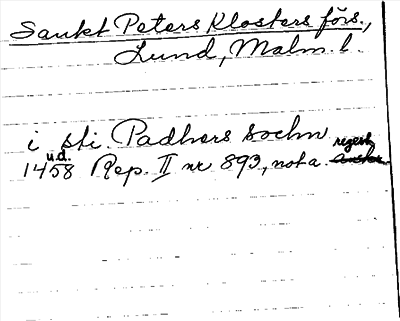 Sankt Peters Klosters förs.,
Lund, Malm. l.
i sti. Padhers sochn
u.d. regest
1458 Rep. II nr 893, not a.